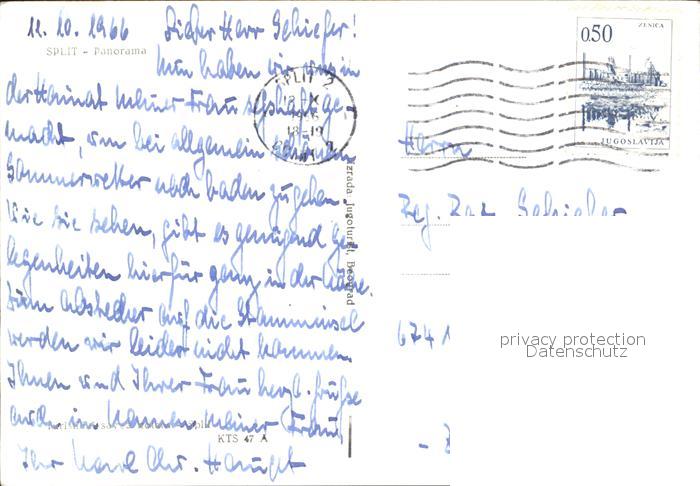 11. 10. 1966 Lieber Herr Schiefer!
SPLIT - Panorama
Nun haben wir uns in
der Heimat meiner Frau seßhaft ge-
macht, um bei allgemein schönem
Sommerwetter noch baden zu gehen.
Wie Sie sehen, gibt es genügend Ge-
legenheiten hierfür ganz in der Nähe.
Zum Abstecher auf die Trauminsel
werden wir leider nicht kommen.
Ihnen und Ihrer Frau herzl. Grüße
auch im Namen meiner Frau,
KTS 47 A
Ihr Karl Chr. Haupt
Izrada Jugoturist, Beograd
SPLIT 2
0.50
ZENICA
JUGOSLAVIJA
Herrn
Reg. Rat Schiefer
674
privacy protection
Datenschutz